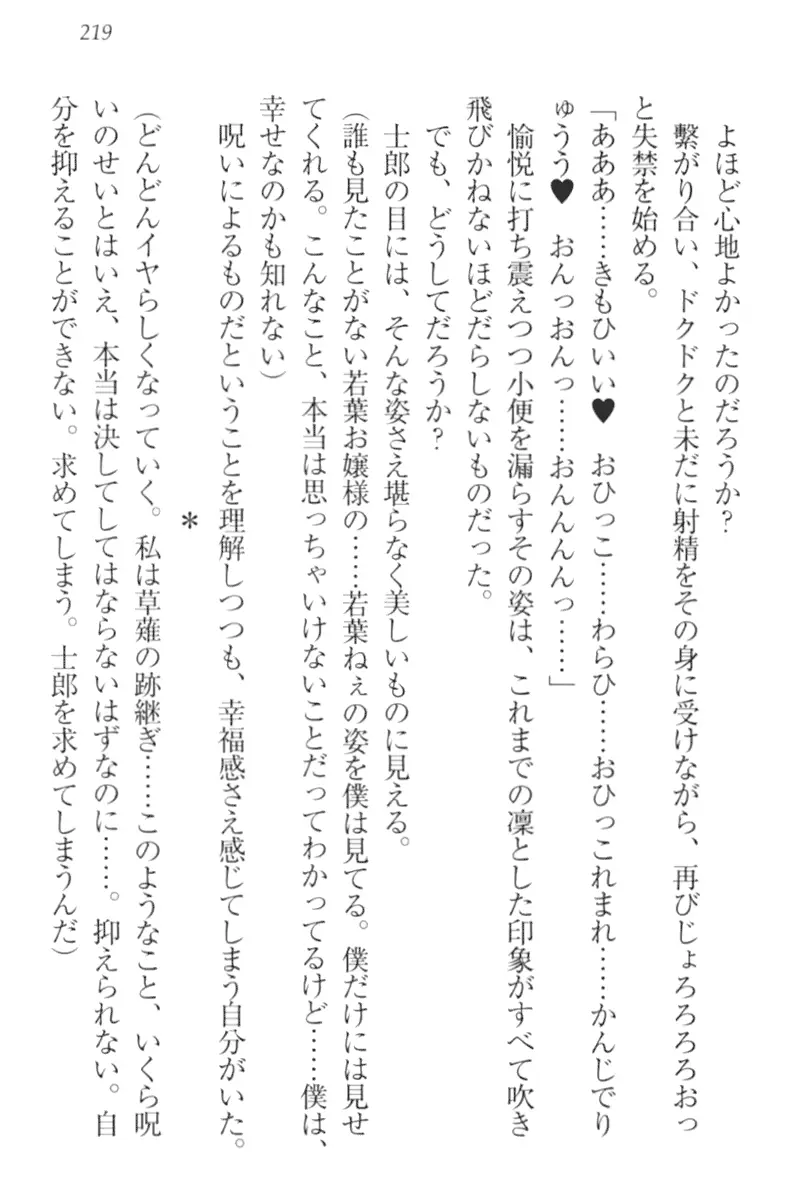 219
よほど心地よかったのだろうか？
繋がり合い、ドクドクと未だに射精をその身に受けながら、再びじょろろろろおっ
と失禁を始める。
「あああ……きもひいい♥　おひっこ……わらひ……おひっこれまれ……かんじでり
ゅうう♥　おんっおんっ……おんんんんっ……」
愉悦に打ち震えつつ小便を漏らすその姿は、これまでの凜とした印象がすべて吹き
飛びかねないほどだらしないものだった。
でも、どうしてだろうか？
士郎の目には、そんな姿さえ堪らなく美しいものに見える。
（誰も見たことがない若葉お嬢様の……若葉ねぇの姿を僕は見てる。僕だけには見せ
てくれる。こんなこと、本当は思っちゃいけないことだってわかってるけど……僕は、
幸せなのかも知れない）
呪いによるものだということを理解しつつも、幸福感さえ感じてしまう自分がいた。
＊
（どんどんイヤらしくなっていく。私は草薙の跡継ぎ……このようなこと、いくら呪
いのせいとはいえ、本当は決してしてはならないはずなのに……。抑えられない。自
分を抑えることができない。求めてしまう。士郎を求めてしまうんだ）